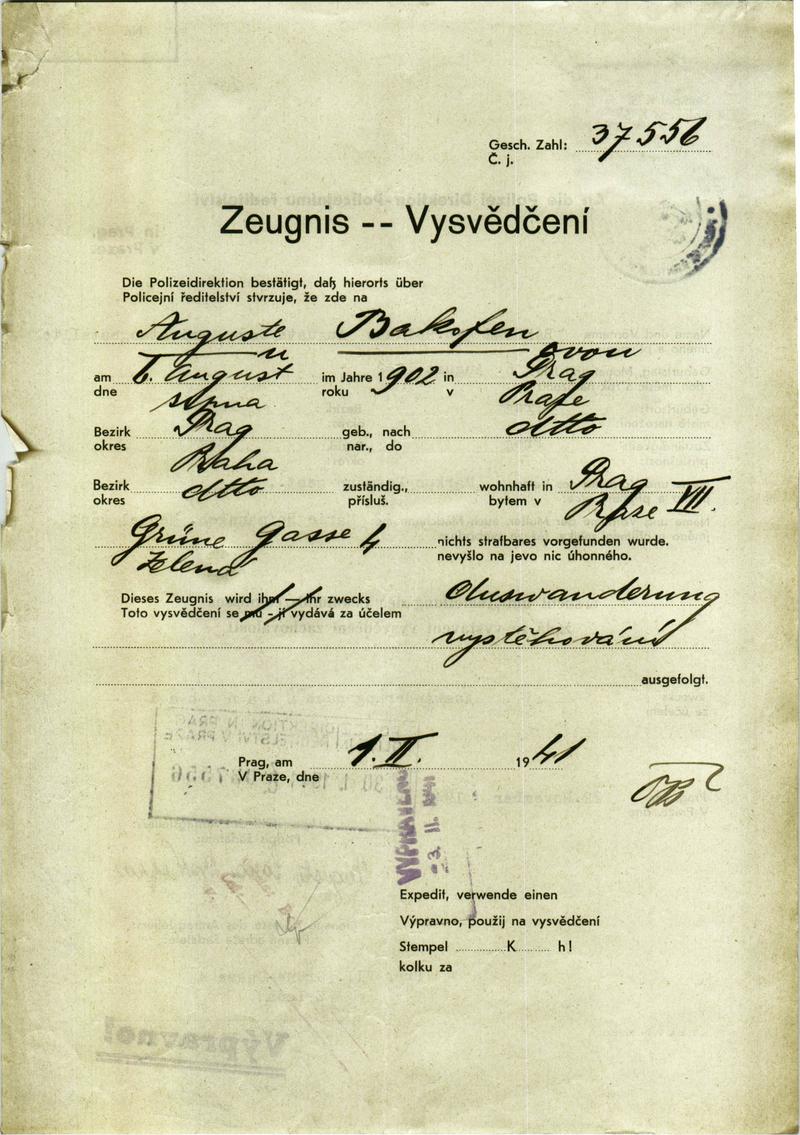 Gesch. Zahl: 37556
Č. j.
Zeugnis -- Vysvědčení
Die Polizeidirektion bestätigt, daß hierorts über
Policejní ředitelství stvrzuje, že zde na
Auguste Bakofen
ovou
am 6. August im Jahre 1902 in Prag
dne srpna roku v Praze
Bezirk Prag geb., nach dtto
okres Praha nar., do
Bezirk dtto zuständig., wohnhaft in Prag VII.
okres přísluš. bytem v Praze
Grüne Gasse 4 nichts strafbares vorgefunden wurde.
Zelená nevyšlo na jevo nic úhonného.
Dieses Zeugnis wird ihm — ihr zwecks Auswanderung
Toto vysvědčení se mu - jí vydává za účelem
vystěhování
ausgefolgt.
Prag, am 1. II. 1941
V Praze, dne
VYPRAVENO
3. II. 1941
Expedit, verwende einen
Výpravno, použij na vysvědčení
Stempel K h!
kolku za
Výpravno!